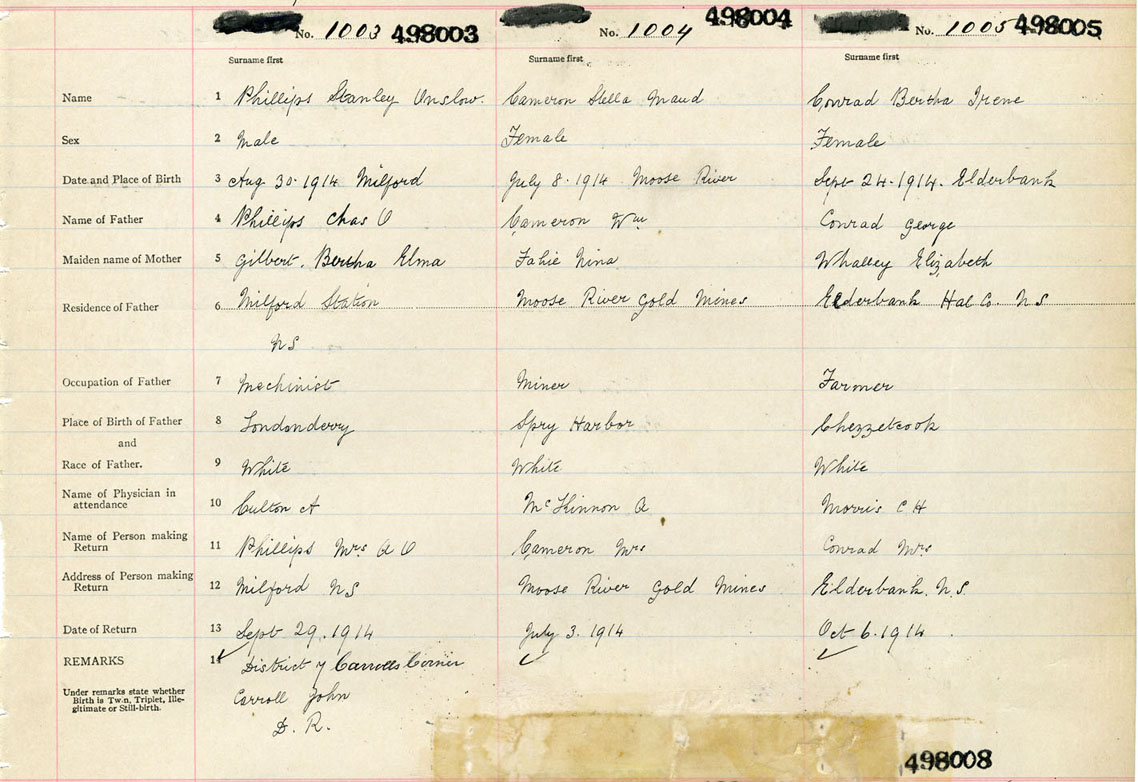 No. 1003 498003 No. 1004 498004 No. 1005 498005
Surname first Surname first Surname first
Name 1 Phillips Stanley Onslow. Cameron Stella Maud Conrad Bertha Irene
Sex 2 Male Female Female
Date and Place of Birth 3 Aug 30 - 1914 Milford July 8 - 1914 Moose River Sept 24 - 1914. Elderbank
Name of Father 4 Phillips Chas O Cameron Wm Conrad George
Maiden name of Mother 5 Gilbert. Bertha Elma Fahie Nina Whalley Elizabeth
Residence of Father 6 Milford Station Moose River Gold Mines Elderbank Hal Co. N S
N S
Occupation of Father 7 Mechinist Miner Farmer
Place of Birth of Father 8 Londonderry Spry Harbor Chezzetcook
and
Race of Father. 9 White White White
Name of Physician in
attendance 10 Culton A McKinnon A Morris C H
Name of Person making
Return 11 Phillips Mrs O Cameron Mrs Conrad Mrs
Address of Person making
Return 12 Milford N S Moose River Gold Mines Elderbank. N. S.
Date of Return 13 Sept 29. 1914 July 3. 1914 Oct 6. 1914
REMARKS 14 District of Carrolls Corner
Under remarks state whether
Birth is Twin, Triplet, Ille-
gitimate or Still-birth.
Carroll John
D. R.
498008